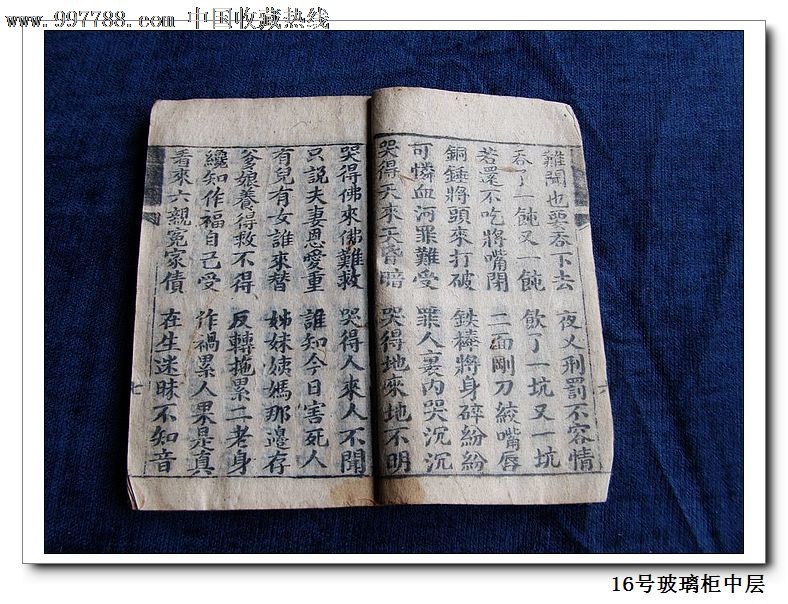 www.997788.com 中国收藏热线
難聞也要吞下去 夜乂刑罰不容情
吞了一飩又一飩 飲了一坑又一坑
若還不吃將嘴閉 二面剛刀絞嘴唇
銅錘將頭來打破 鉄棒將身碎紛紛
可憐血河罪難受 罪人裏內哭沉沉
哭得天來天昏暗 哭得地來地不明
哭得佛來佛難救 哭得人來人不聞
只說夫妻恩愛重 誰知今日害死人
有兒有女誰來替 姊妹姨媽那邊存
爹娘養得救不得 反轉拖累二老身
纔知作福自己受 作禍累人果是真
看來六親冤家債 在生迷昧不知音
七
16号玻璃柜中层